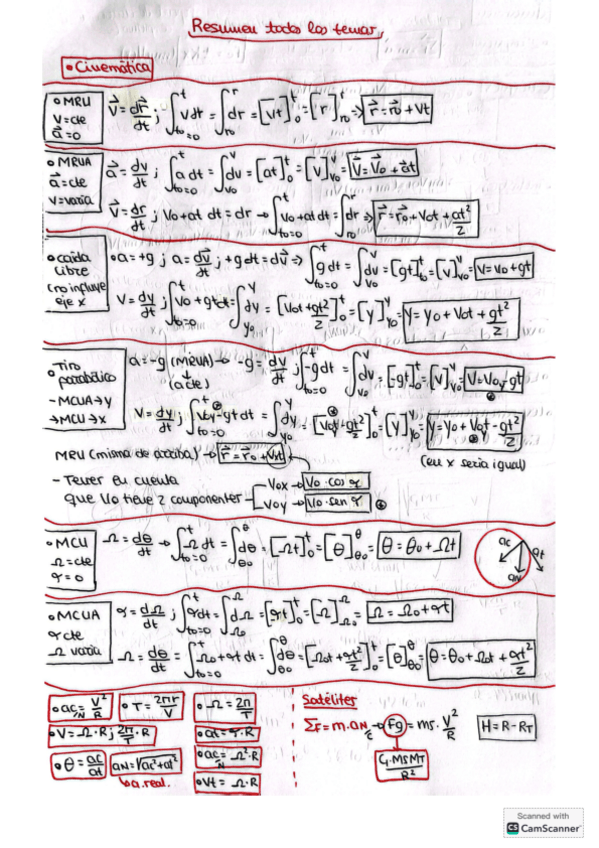 Resumen todos los temas
• Cinemática
• MRU
V=cte
a⃗=0
V⃗=dr⃗/dt; ∫_{t0=0}^{t} vdt = ∫_{r0}^{r} dr = [vt]_0^t = [r]_{r0}^r ⇒ r⃗=r⃗0+Vt
• MRUA
a⃗=cte
v=varía
a⃗=dv/dt; ∫_{t0=0}^{t} a dt = ∫_{v0}^{v} dv = [at]_0^t = [v]_{v0}^v = V⃗=V⃗0+at
V⃗=dr/dt; V0+at dt=dr → ∫_{t0=0}^{t} V0+at dt = ∫_{r0}^{r} dr ⇒ r⃗=r⃗0+V0t+at²/2
• caída
libre
(no influye
eje x
• a=+g; a=dv⃗/dt; +g dt=dv⃗ ⇒ ∫_{t0=0}^{t} gdt = ∫_{v0}^{v} dv = [gt]_0^t = [v]_{v0}^v = V=V0+gt
V=dy/dt; ∫_{t0=0}^{t} V0+gt dt = ∫_{y0}^{y} dy = [V0t+gt²/2]_0^t = [y]_{y0}^y = y=y0+V0t+gt²/2
• Tiro
parabólico
-MCUA→y
→MCU→x
a=-g (MRUA)→ -g=dv/dt; ∫_{t0=0}^{t} -gdt = ∫_{v0}^{v} dv = [-gt]_0^t = [v]_{v0}^v = V=V0y-gt
(a cte)
V=dy/dt; ∫_{t0=0}^{t} V0y-gt dt = ∫_{y0}^{y} dy = [V0yt-gt²/2]_0^t = [y]_{y0}^y = y=y0+V0yt-gt²/2
MRU (misma de arriba) → r⃗=r⃗0+Vxt
(en x sería igual)
- Tener en cuenta
que V0 tiene 2 componentes
V0x → V0·cos α
V0y → V0·sen α
• MCU
Ω=cte
α=0
Ω=dθ/dt → ∫_{t0=0}^{t} Ω dt = ∫_{θ0}^{θ} dθ = [Ωt]_0^t = [θ]_{θ0}^θ = θ=θ0+Ωt
ac
at
aN
• MCUA
α cte
Ω varía
α=dΩ/dt; ∫_{t0=0}^{t} αdt = ∫_{Ω0}^{Ω} dΩ = [αt]_0^t = [Ω]_{Ω0}^Ω = Ω=Ω0+αt
Ω=dθ/dt = ∫_{t0=0}^{t} Ω0+αt dt = ∫_{θ0}^{θ} dθ = [Ω0t+αt²/2]_0^t = [θ]_{θ0}^θ = θ=θ0+Ω0t+αt²/2
• ac=V²/R
N
• T=2πr/V
• Ω=2π/T
• V=Ω·R; 2π/T·R
• at=α·R
• θ=ac/at
aN=√ac²+at²
↳a.real.
• ac=Ω²·R
N
• Vt=Ω·R
Satélites
ΣF=m·aN → Fg=ms·V²/R
H=R-RT
G·MSMT/R²
Scanned with
CS CamScanner